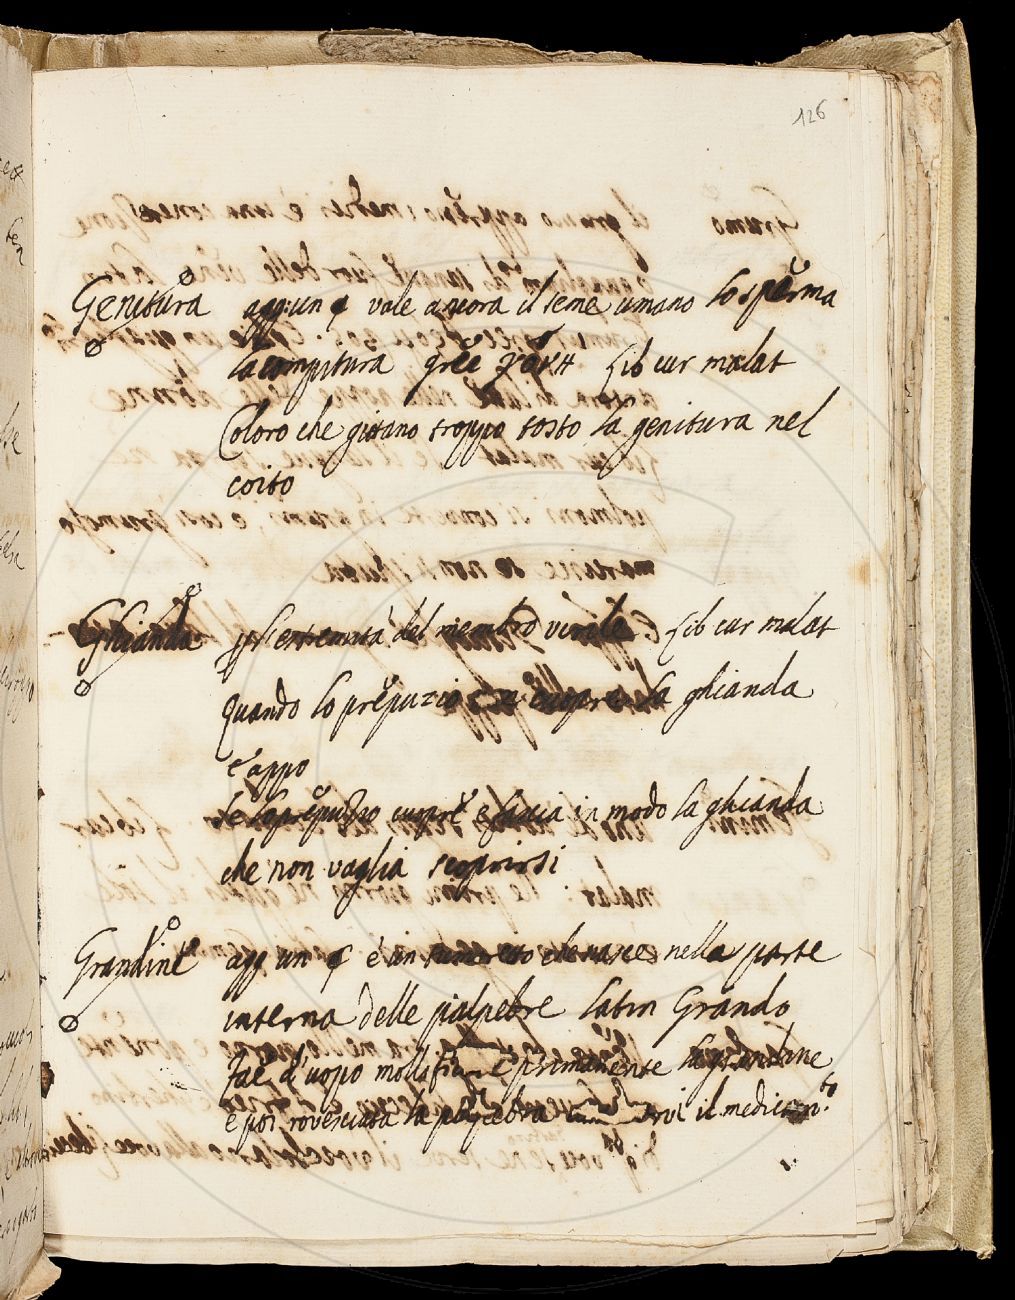 126
Genitura agg: un § vale ancora il seme umano lo sperma
la compitura gree γονη Lib cur malat
Coloro che gittano troppo tosto la genitura nel
coito
Ghianda p l'estremità del membro virile Lib cur malat
Quando lo prepuzio cuopre la ghianda
e appo
Se lo prepuzio cuopre e fascia in modo la ghianda
che non vaglia scoprirsi
Grandine agg un § è un che nasce nella parte
interna delle palpebre latin Grando
Fae d'uopo mollificare primamente la grandine
e poi rovesciata la palpebra il medicam.to